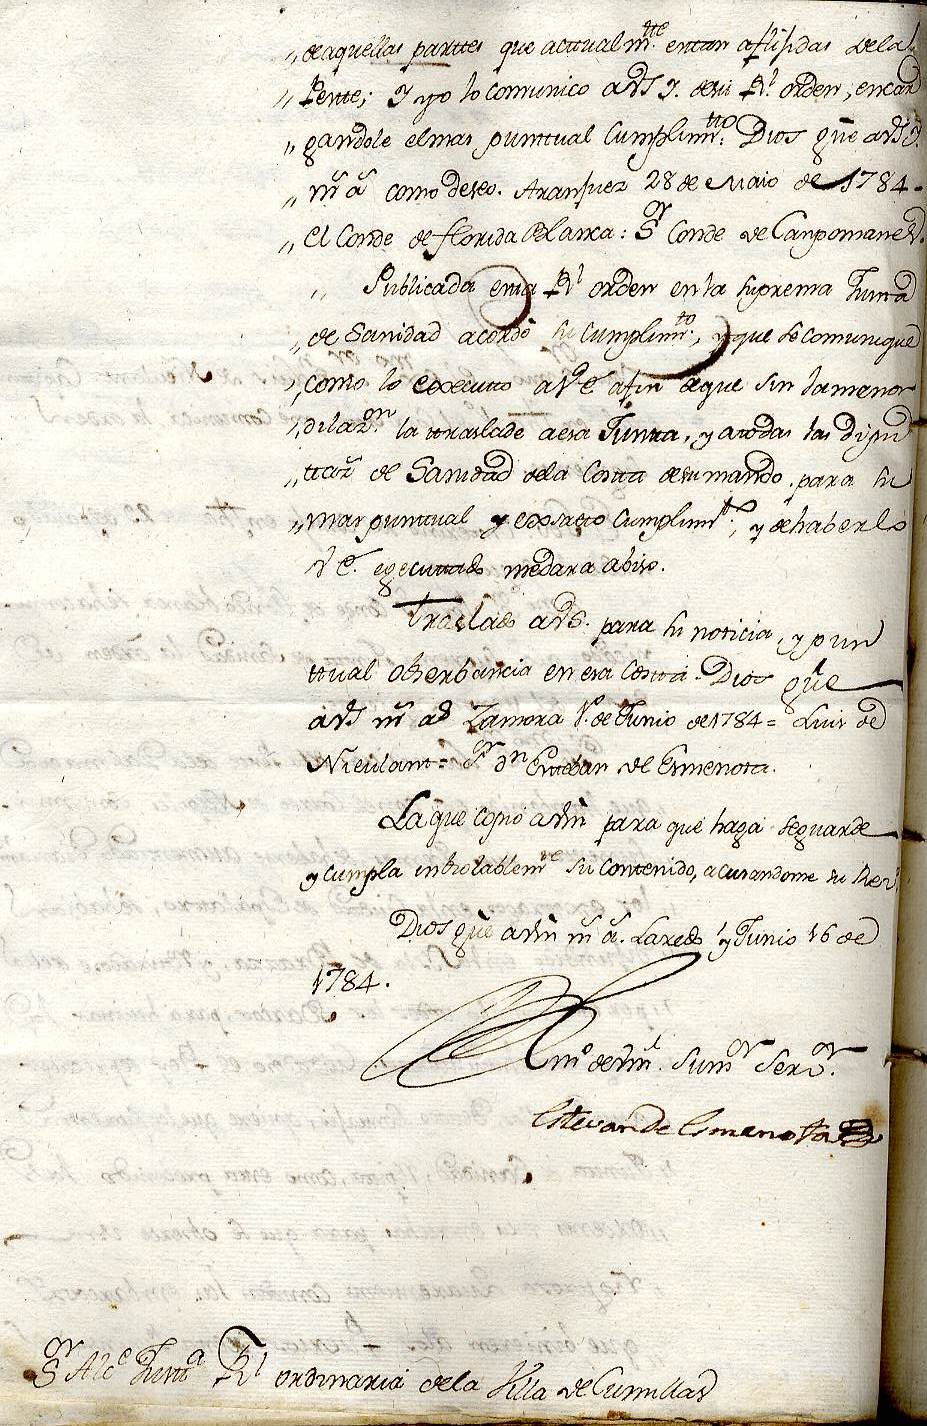 „ de aquellas parttes que actualm.tte estan aflijidas de la
„ Peste; y yo lo comunico a VS Y. de su Rl. orden, encar
„ gandole el mas punttual Cumplim.tto Dios gūe a VS Y.
„ m.s a.s como deseo. Aranjuez 28 de Maio de 1784 =
„ El Conde de florida Blanca: S.or Conde de Campomanes.
„ Publicada esta Rl. orden en la suprema Junta
„ de Sanidad acordò su Cumplim.to, y que se comunique
„ como lo executto a VE afin de que sin la menor
„ dilaz.on la ttraslade a esa Junta, y a todas las Dipu
„ ttaz.s de Sanidad de la Costta de su mando, para su
„ mas puntual y exsacto Cumplim.to, y de haberlo
VE. egecuttado me dara abiso.
Traslado a VS. para su noticia, y pun
ttual obserbancia en esa Costta. Dios gūe
a VS m.s a.s Zamora 1.º de Junio de 1784 = Luis de
Nieulant = S.or D.n Esteban de Esmenota.
La que copio a Vm para que haga se guarde
y cumpla inbiolablem.te su contenido, acusandome su Rec.vo
Dios gūe a Vm m.s a.s Laredo y Junio 16 de
1784.
B l m.o de Vm. su m.or Ser.or
Estevan de Esmenota
S.or Alc.e Justt.a Rl ordinaria de la Villa de Cumillas